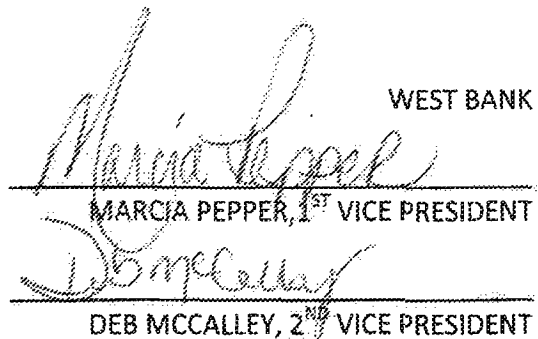 WEST BANK
Marcia Pepper
MARCIA PEPPER, 1ST VICE PRESIDENT
Deb McCalley
DEB MCCALLEY, 2ND VICE PRESIDENT